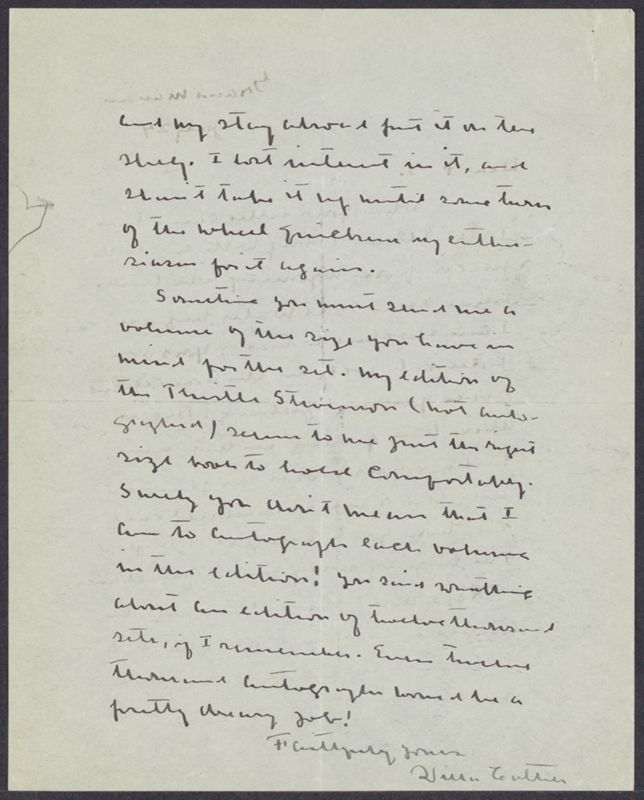 and my stay abroad put it on the
shelf. I lost interest in it, and
shan't take it up until some turn
of the wheel quickens my enthu-
siasm for it again.
Sometime you must send me a
volume of the size you have in
mind for the set. My edition of
the Thistle Stevenson (not auto-
graphed) seems to me just the right
size book to hold comfortably.
Surely you don't mean that I
am to autograph each volume
in the edition! You said something
about an edition of twelve thousand
sets, if I remember. Even twelve
thousand autographs would be a
pretty dreary job!
Faithfully yours
Willa Cather